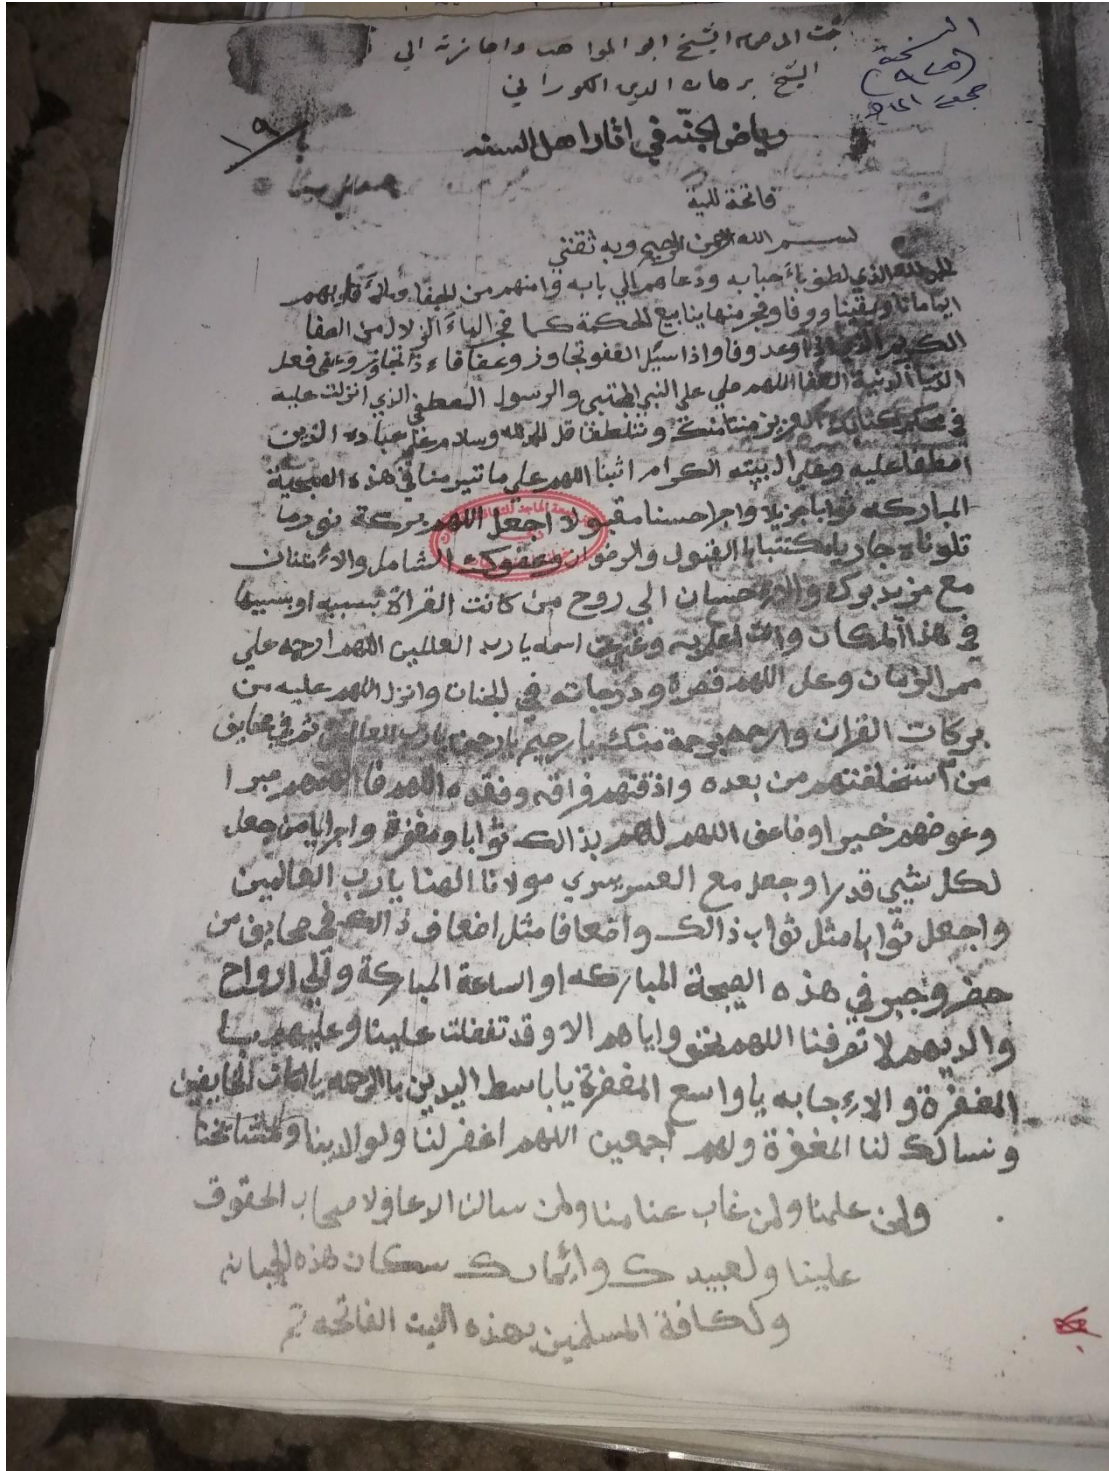 ثبت المرحوم الشيخ ابو المواهب واجازته الي
الشيخ برهان الدين الكوراني
رياض الجنّه في اثار اهل السنه
١٩
فاتحة للميه
بسم الله الرحمن الرحيم وبه ثقتي
الحمد لله الذي لطف باءَحبابه ودعاهم الي بابه وامنهم من الجفا وملاءَ قلوبهم
ايمانا ويقينا ووفا وفجر منها ينابيع الحكمة كما فجر الماءَ الزلال من الصفا
الكريم الذي اذا وعد وفا واذا سيُل العفو تجاوز وعفا فاءِذا تجاوز وعفى فعل
الدنيا الدنية العفا اللهم صلي على النبي المجتبى والرسول المصطفى الذي انزلت عليه
في محكم كتابك العزيز منتا منك وتلطفا قل الحمد لله وسلام على عباده الذين
اصطفا عليه وعلى ال بيته الكرام اثبنا اللهم على ما تيسر منا في هذه الصبحية
المباركه ثوابا جزيلا واجرا حسنا مقبولا اجعل اللهم بركة نور ما
تلوناه جاريا مكتتبا بالقبول والرضوان وعفوك الشامل والاءمتنان
مع مزيد بوك والاءحسان الي روح من كانت القراة بسببه او بسببها
في هذا المكان وانت اعلم به وغني عن اسمه يا رب العالمين اللهم ارحمه علي
ممر الزمان وعل اللهم قصره ودرجاته في الجنان وانزل اللهم عليه من
بركات القران والرحمه برحمة منك يا رحيم يا رحمن يا رب العالمين ثم في صحايف
من استخلفتهم من بعده واذقتهم فراقه وفقده اللهم فالهمهم صبرا
وعوضهم خيرا وضاعف اللهم لهم بذالك ثوابا ومغفرة واجرا يا من جعل
لكل شيي قدرا وجعل مع العسر يسري مولانا الهنا يا رب العالمين
واجعل ثوابا مثل ثواب ذالك واضعافا مثل اضعاف ذالك في صحايف من
حضر وجبر في هذه الصبحة المباركه او الساعة المباركة والي ارواح
والديهم لا تصرفنا اللهم نحن واياهم الا وقد تفضلت علينا وعليهم با
المغفرة والاءِجابه يا واسع المغفرة يا باسط اليدين بالرحمه يا امان الخايفين
ونسالك لنا المغفرة ولهم اجمعين اللهم اغفر لنا ولوالدينا ولمشايخنا
ولمن علمنا ولمن غاب عنا منا ولمن سالنا الدعا ولاصحاب الحقوق
علينا ولعبيدك وائمائك سكان هذه الجبانه
ولكافة المسلمين بهذه النيت الفاتحه تم